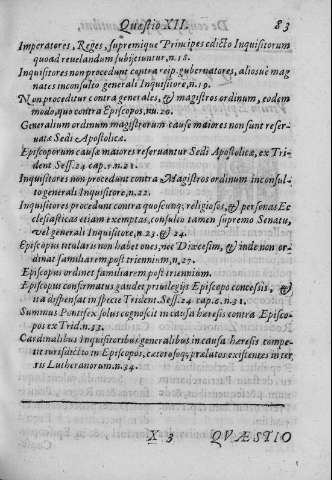 Quæstio XII. 83
Imperatores, Reges, supremique Principes edicto Inquisitorum
quoad reuelandum subijciuntur, n. 18.
Inquisitores non procedunt contra reip. gubernatores, aliosue mag
nates inconsulto generali Inquisitore, n. 19.
Non proceditur contra generales, & magistros ordinum, eodem
modo, quo contra Episcopos, nu. 20.
Generalium ordinum magistrorum cause maiores non sunt reser-
uatæ Sedi Apostolicæ.
Episcoporum causæ maiores referuantur Sedi Apostolicæ, ex Tri-
dent. Sess. 24. cap. 5. n. 21.
Inquisitores non procedunt contra Magistros ordinum inconsul-
to generali Inquisitore, n. 22.
Inquisitores procedunt contra quoscunq; religiosos, & personas Ec
clesiasticas etiam exemptas, consulto tamen supremo Senatu,
vel generali Inquisitore, n. 23. & 24.
Episcopus titularis non habet oues, nec Diæcesim, & inde non or-
dinat familiarem post triennium, n, 27.
Episcopus ordinet familiarem post triennium.
Episcopus confirmatus gaudet priuilegijs Episcopo concessis, &
ita dispensat in specie Trident. Sess. 24. cap. 6. n. 31.
Summus Pontifex solus cognoscit in causa hæresis contra Episco-
pos ex Trid. n. 33.
Cardinalibus Inquisitoribus generalibus in causa hæresis compe-
tit iurisdictio in Episcopos, cæterosq; prælatos existentes in ter
ris Lutheranorum. n. 34.
X 3 QVÆSTIO